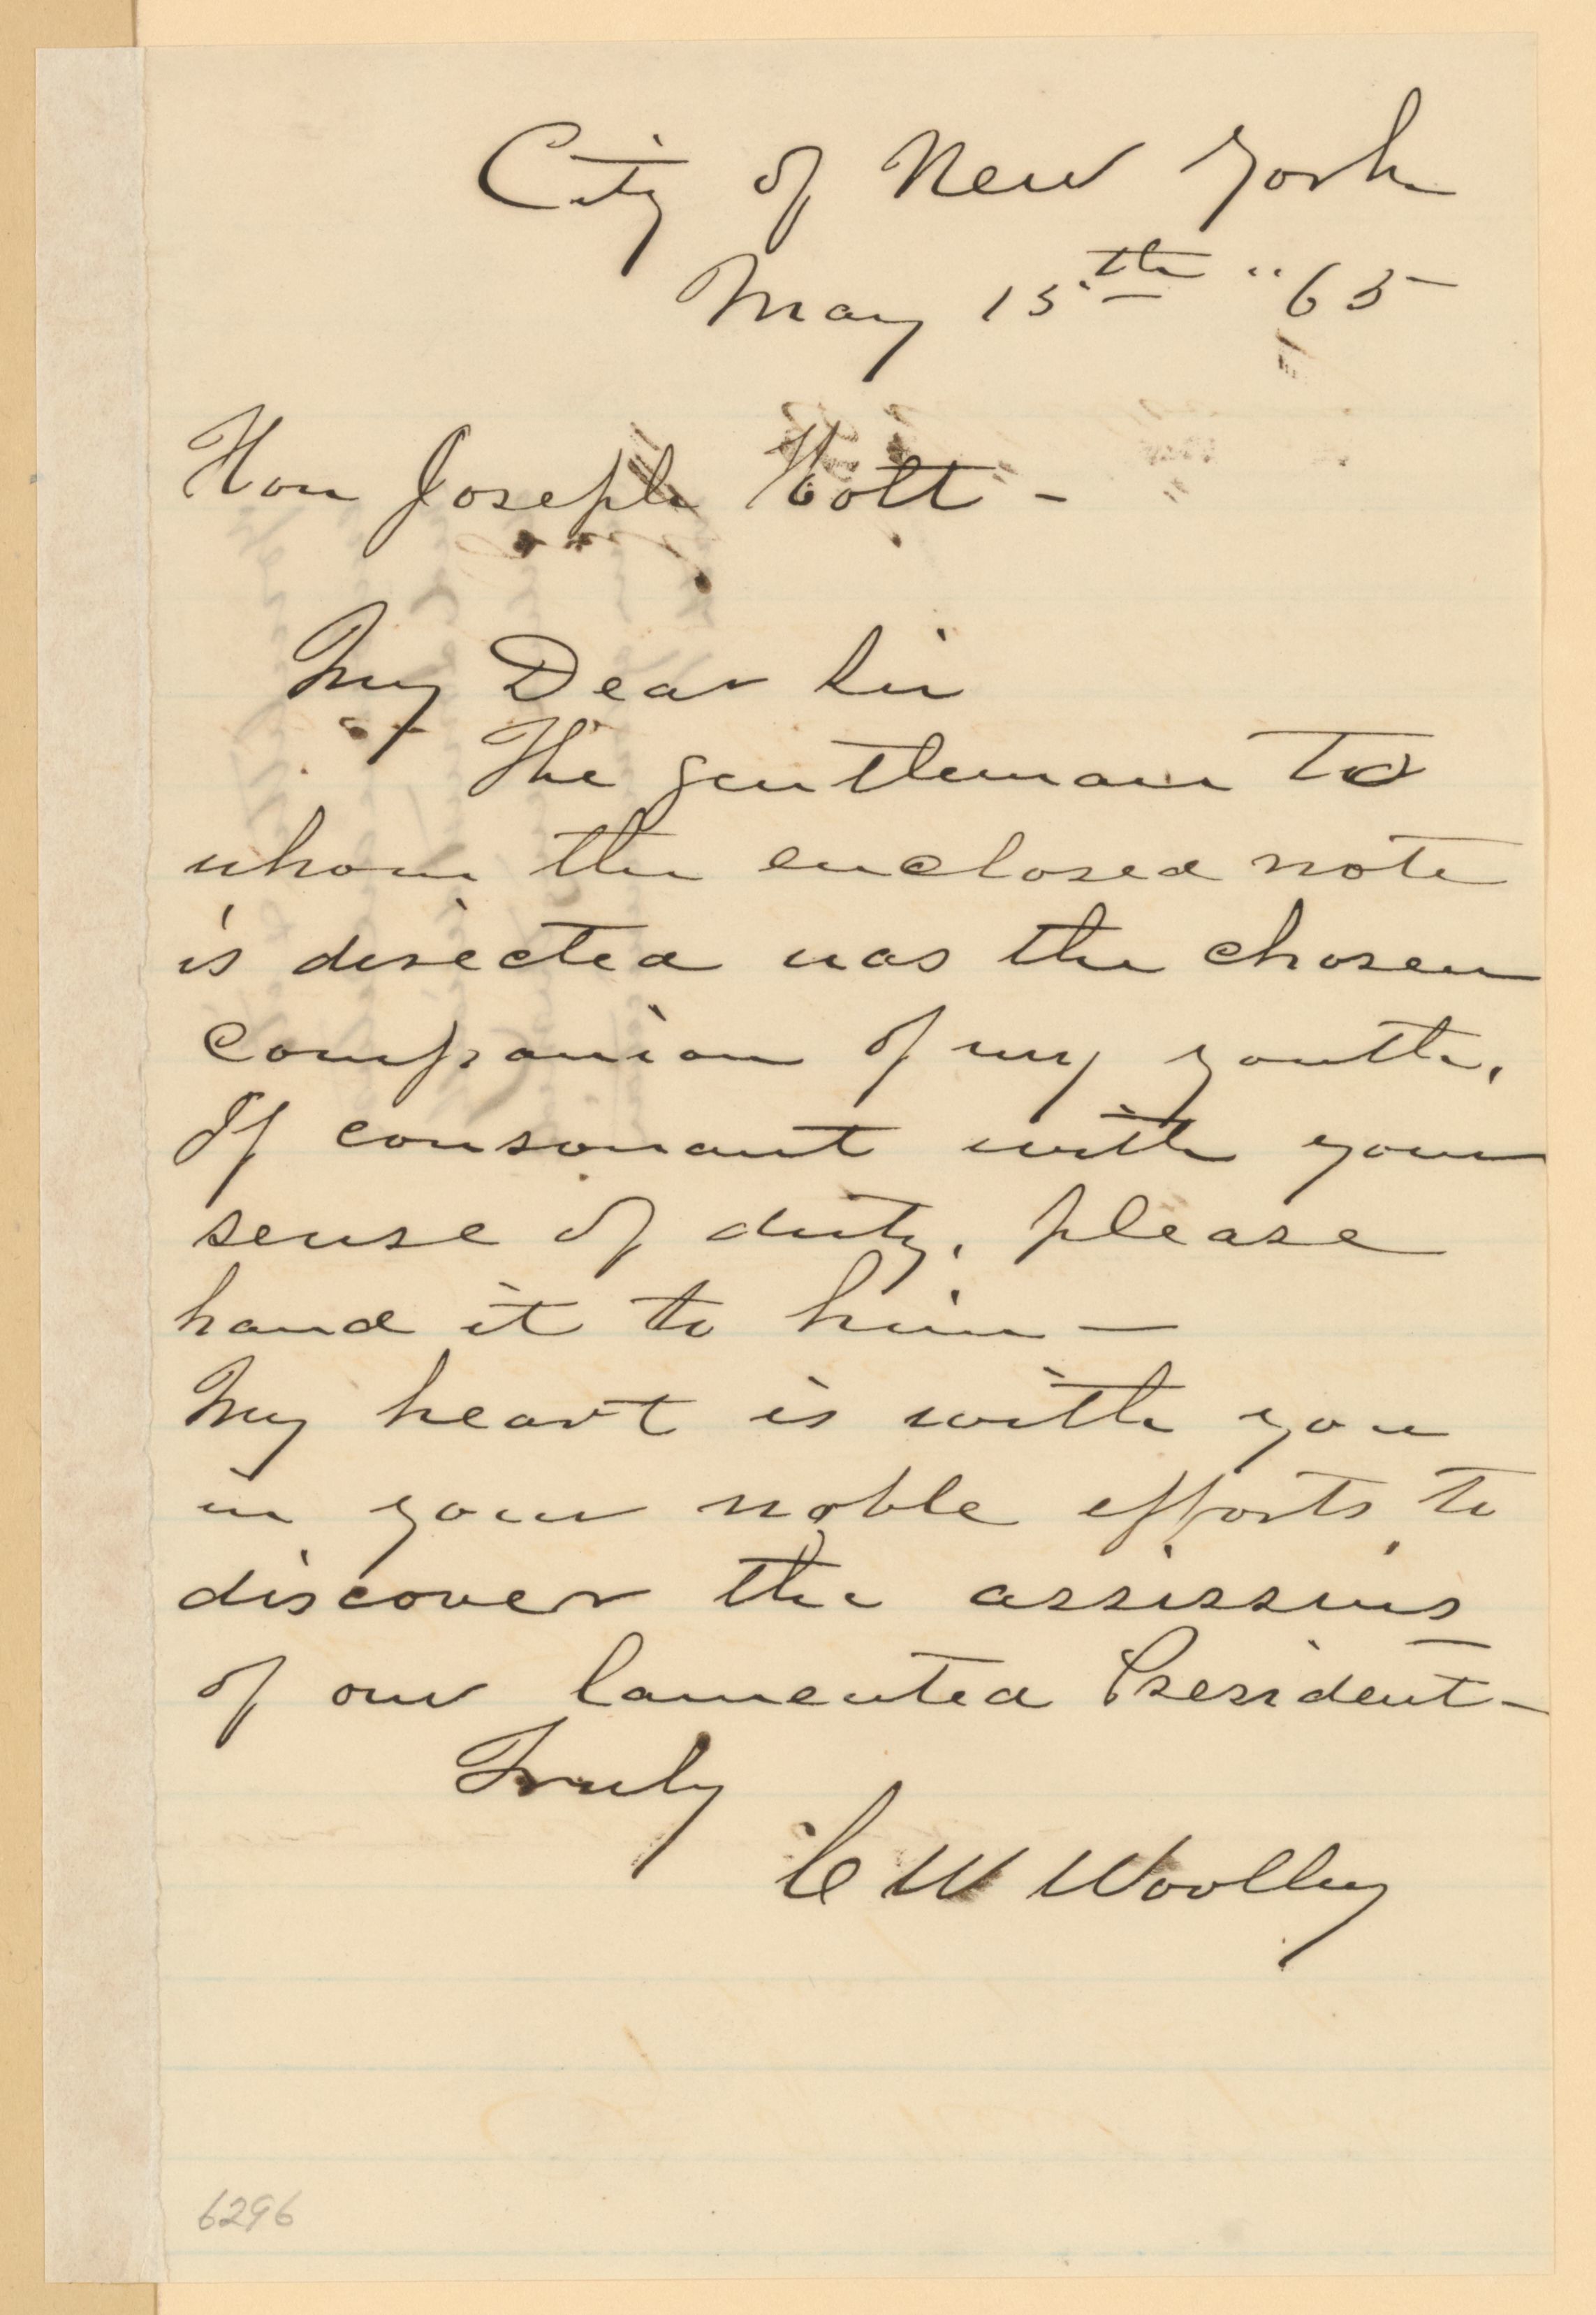 City of New York
May 15th "65
Hon Joseph Holt -
My Dear Sir
The gentleman to
whom the enclosed note
is directed was the chosen
companion of my youth.
If consonant with your
sense of duty, please
hand it to him —
My heart is with you
in your noble efforts to
discover the assissins
of our lamented President -
Truly
C W Woolley
6296